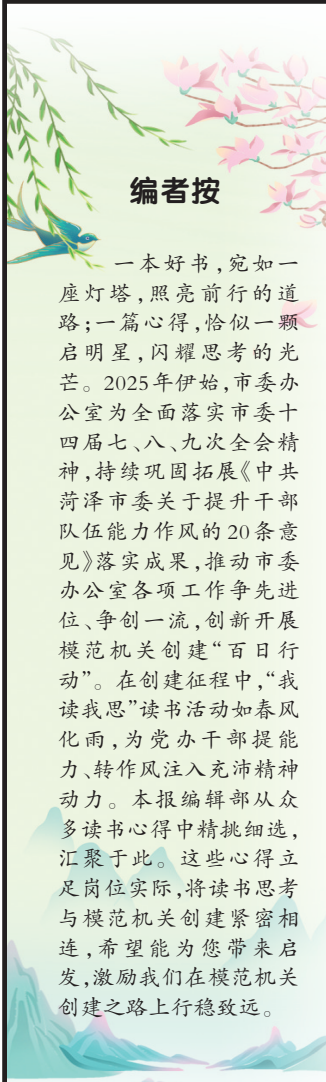 编者按
一本好书,宛如一
座灯塔,照亮前行的道
路;一篇心得,恰似一颗
启明星,闪耀思考的光
芒。2025年伊始,市委办
公室为全面落实市委十
四届七、八、九次全会精
神,持续巩固拓展《中共
菏泽市委关于提升干部
队伍能力作风的20条意
见》落实成果,推动市委
办公室各项工作争先进
位、争创一流,创新开展
模范机关创建“百日行
动”。在创建征程中,“我
读我思”读书活动如春风
化雨,为党办干部提能
力、转作风注入充沛精神
动力。本报编辑部从众
多读书心得中精挑细选,
汇聚于此。这些心得立
足岗位实际,将读书思考
与模范机关创建紧密相
连,希望能为您带来启
发,激励我们在模范机关
创建之路上行稳致远。